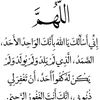 اللَّهُمَّ
إِنِّي أَسْأَلُكَ يَا اللَّهُ بِأَنَّكَ الْوَاحِدُ الْأَحَدُ،
الصَّمَدُ، الَّذِي لَمْ يَلِدْ وَلَمْ يُولَدْ وَلَمْ
يَكُنْ لَهُ كُفُوًا أَحَدٌ، أَنْ تَغْفِرَ لِي
ذُنُوبِي، إِنَّكَ أَنْتَ الْغَفُورُ الرَّحِيمُ